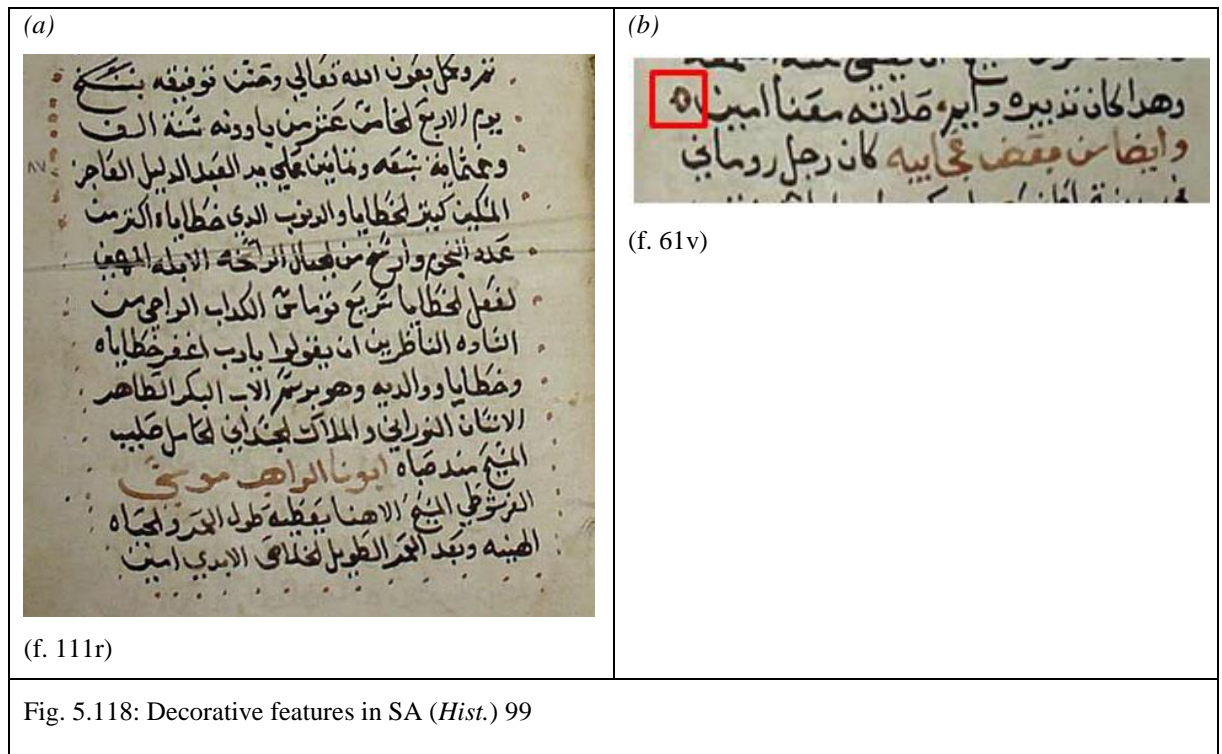 (a)
تم وكمل بعون الله تعالي وحسن توفيقه
يوم الاربع الخامس عشر من باوونه سنة الف
وخمتماية تسعه وتمانين علي يد العبد الدليل الفاجر
المسكين كبير الخطايا والدنوب الدي خطاياه اكتر من
عدد النجوم من الجبال الابله المهين
لفعل الخطايا توماس الكداب الراجي من
الساده الناظرين ان يقولوا يارب اغفر خطاياه
وخطايا ووالديه وهو برسم الاب البكر الطاهر
الانسان النوراني و الملاك الجسداني الحامل صليب
المسيح مند صباه ابونا الراهب موسي
المسيح الاهنا يعطيه طول العمر والحياه
الهنيه وبعد العمر الطويل الخلاص الابدي امين
٨٧
(f. 111r)
(b)
وهدا كان تدبيره صلاته معنا امين
وايضا من بعض عجايبه كان رجل روماني
(f. 61v)
Fig. 5.118: Decorative features in SA (Hist.) 99